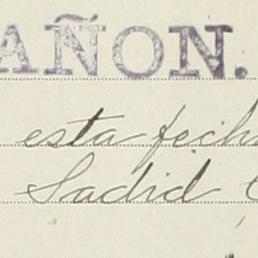 AÑON.
esta fecha
Sadid